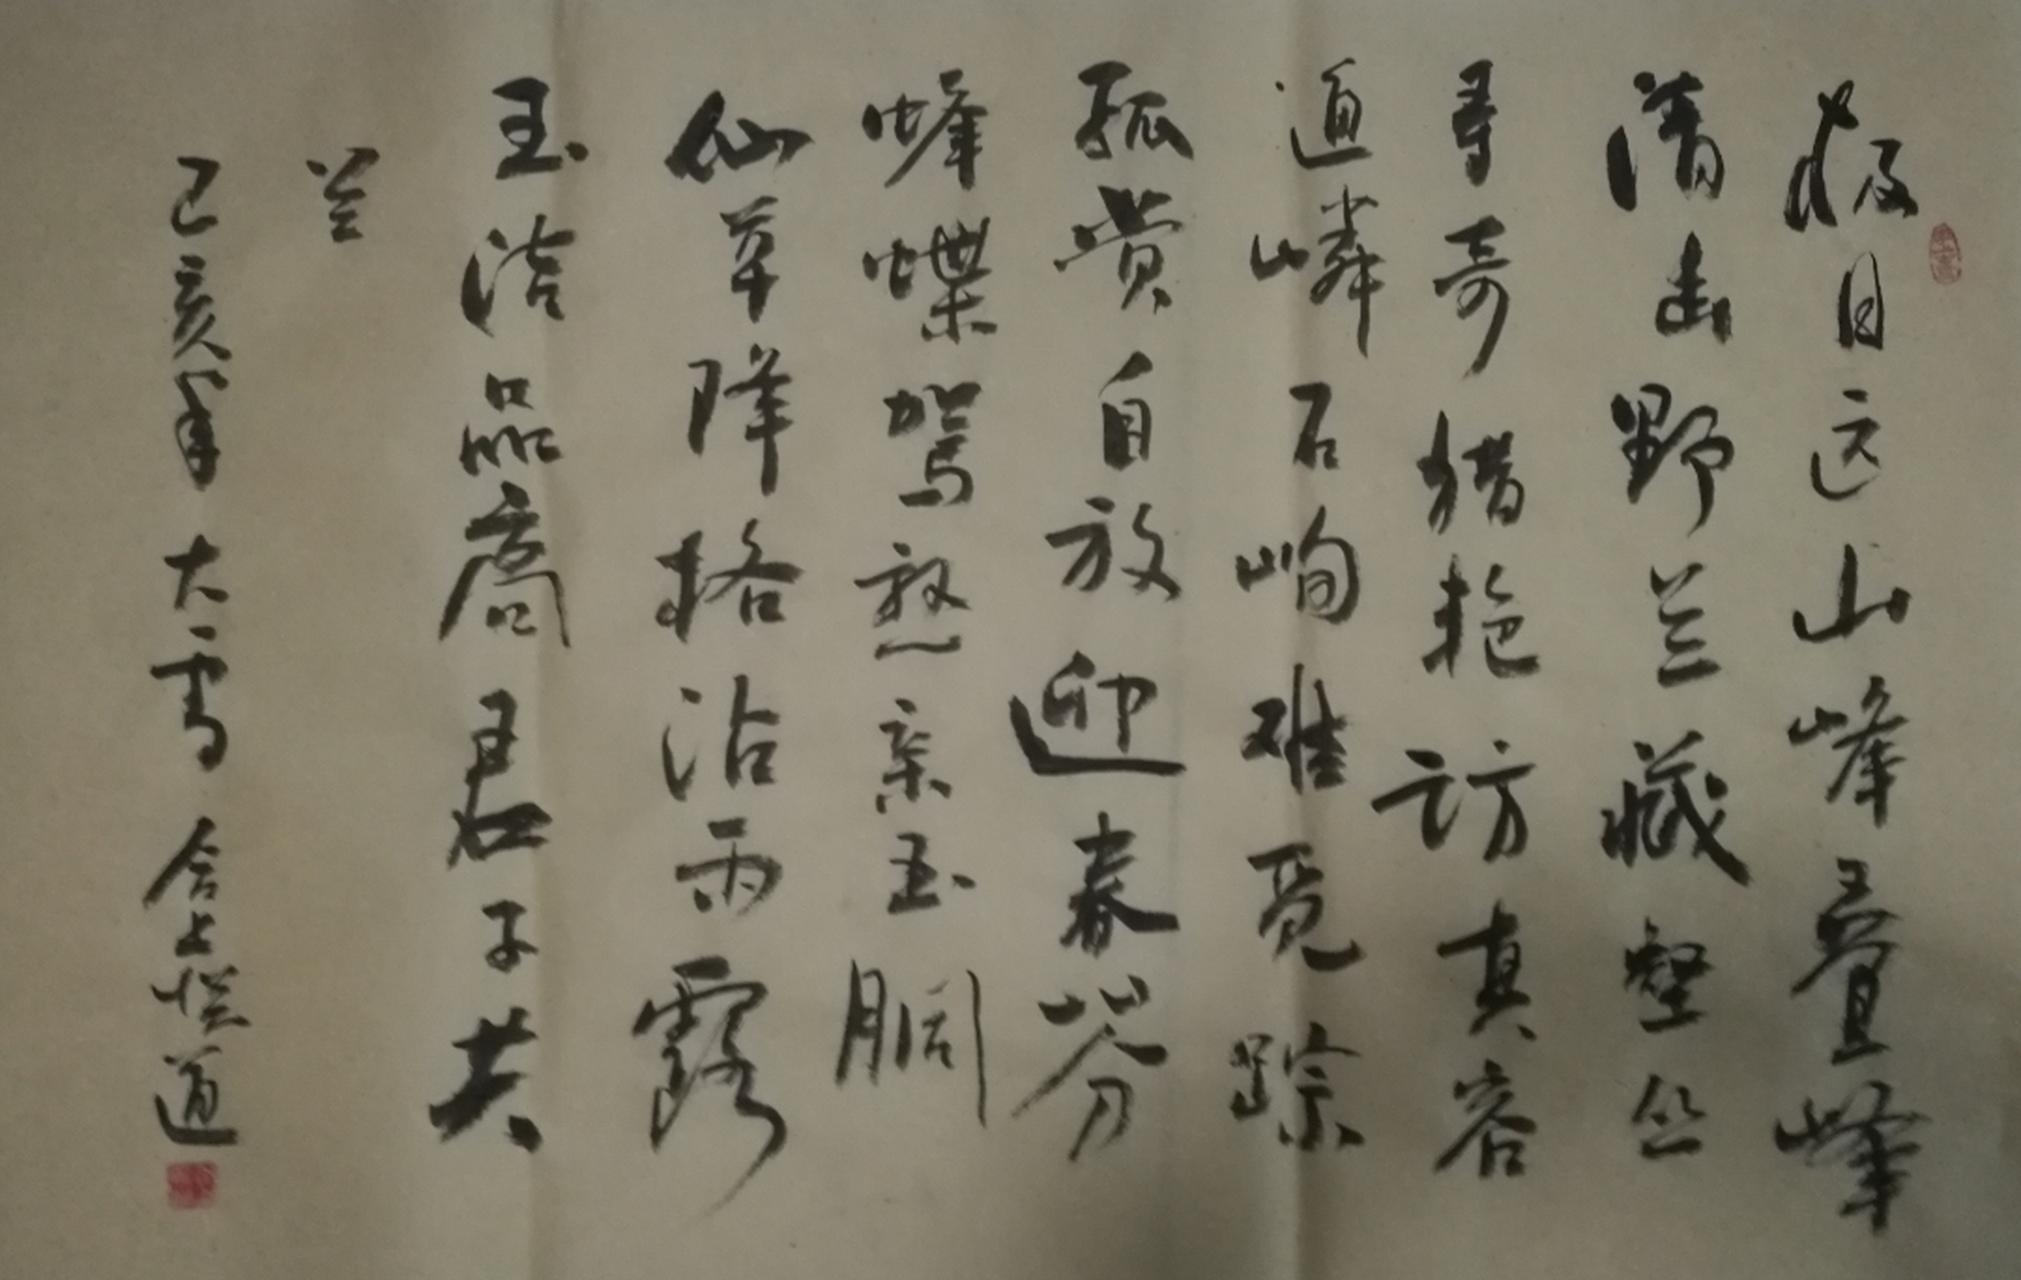 极目远山峰叠峰
清幽野兰藏壑丛
寻奇猎艳访真容
道嶙石峋难觅踪
孤赏自放迎春芬
蜂蝶鸳愁亲玉胴
仙草降格沾雨露
玉洁品高君子共
兰
己亥年大雪合上道